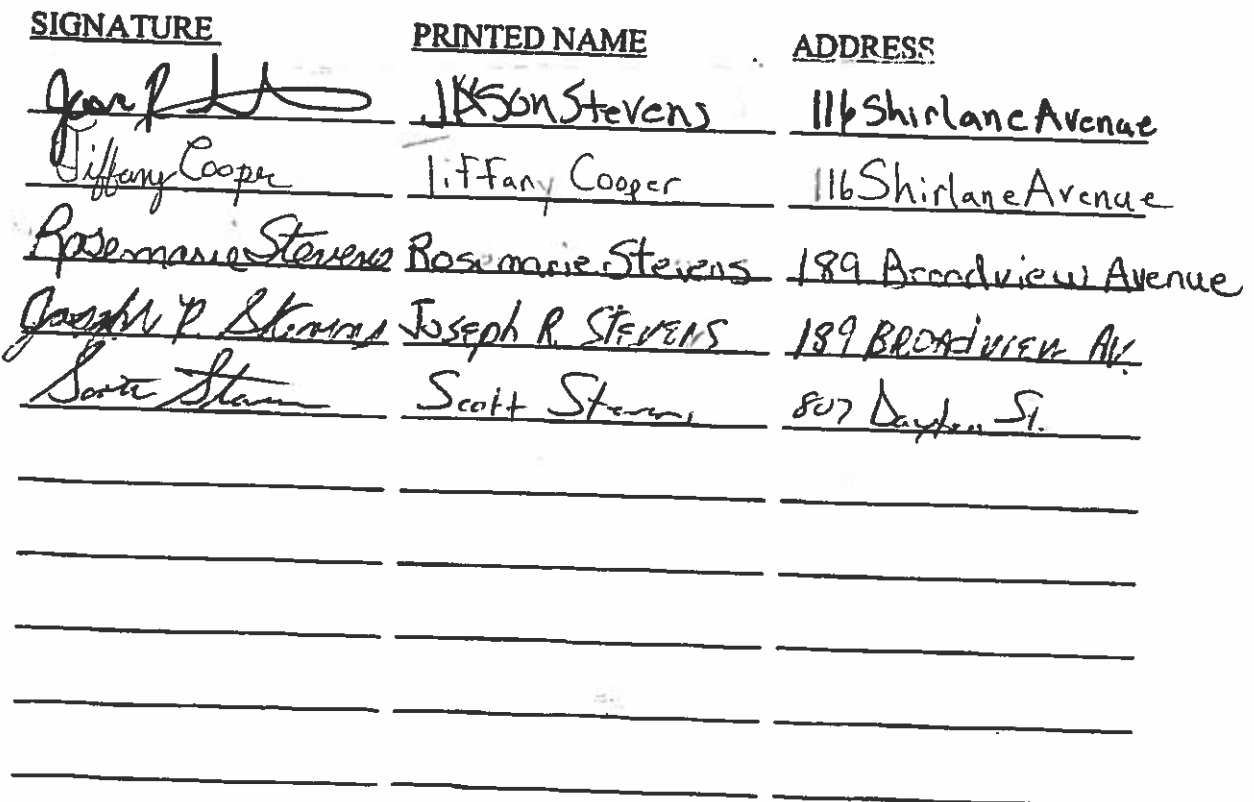 SIGNATURE PRINTED NAME ADDRESS
Jason Stevens 116 Shirlane Avenue
Tiffany Cooper Tiffany Cooper 116 Shirlane Avenue
Rosemarie Stevens Rosemarie Stevens 189 Broadview Avenue
Joseph R. Stevens Joseph R. STEVENS 189 BROADVIEW AV.
Scott Stevens Scott Stevens 807 Dayton St.